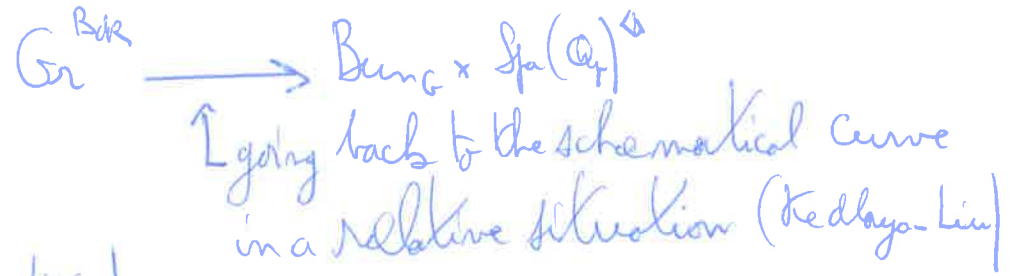 Gr^{BdR} → Bun_G × Spa(Q_p)^◇
↑ going back to the schematical curve
in a relative situation (Kedlaya-Liu)